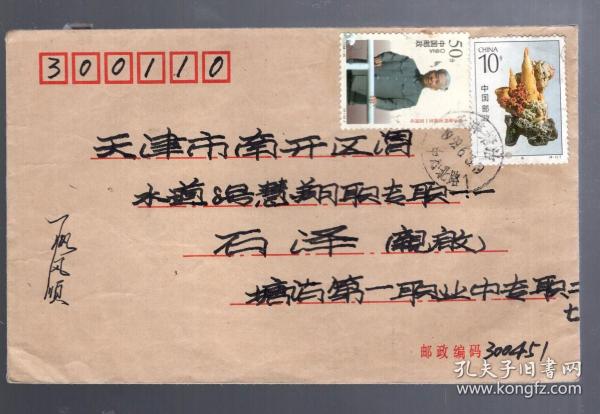 300110
50分
中国邮政
CHINA
10分
中国邮政
天津市南开区渭
水道8号慧翔职专职一
石泽(親啟)
一帆风顺
塘沽第一职业中专职二
七
邮政编码 300451
孔夫子旧书网
www.kongfz.com